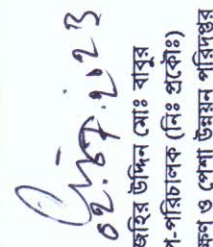 ০২.০৭.২০২৩
জহির উদ্দিন মোঃ বাবুর
প-পরিচালক (নিঃ প্রকৌঃ)
ক্ষণ ও পেশা উন্নয়ন পরিদপ্তর